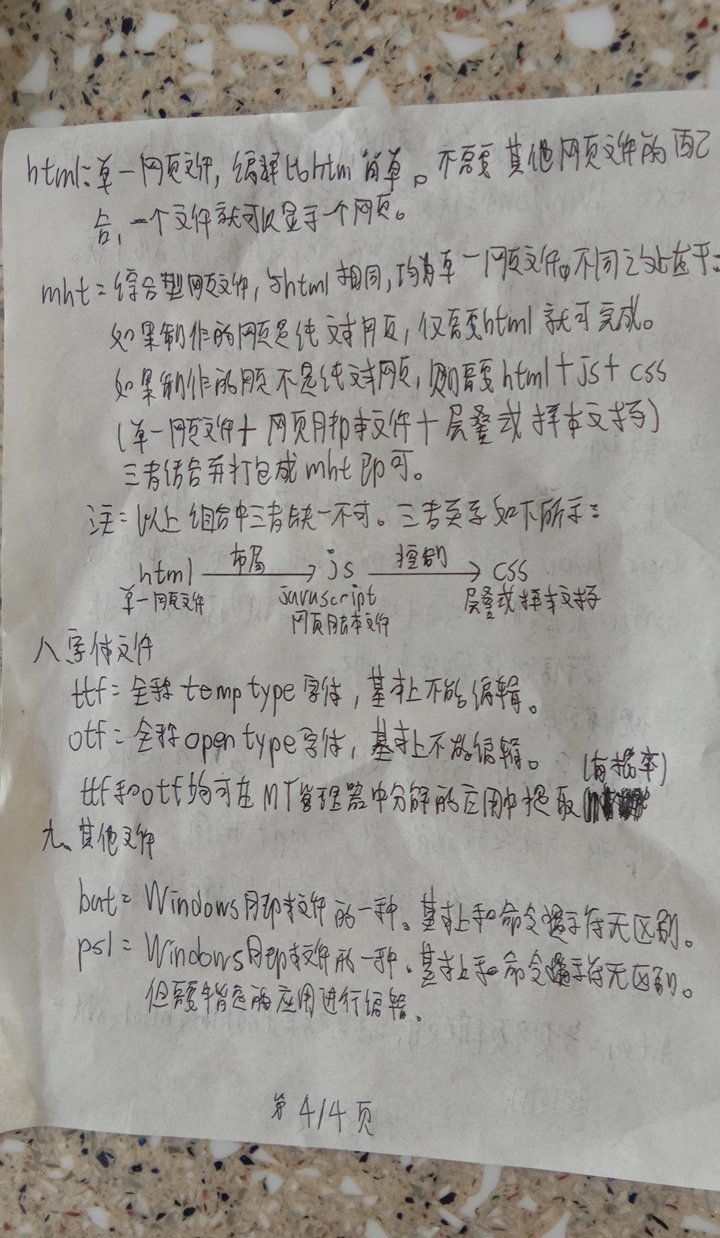 html：单一网页文件，编辑比htm简单。不需要其他网页文件的配
合，一个文件就可以显示一个网页。
mht=综合型网页文件，与html相同，均为单一网页文件。不同之处在于：
如果制作的网页是纯文本网页，仅需要html就可完成。
如果制作的网页不是纯文本网页，则需要html+js+css
(单一网页文件+网页脚本文件+层叠或样本文档)
三者结合并打包成mht即可。
注=以上组合中三者缺一不可。三者关系如下所示：
html 布局 → js 控制 → css
单一网页文件 javascript 层叠或样本文档
网页脚本文件
八、字体文件
ttf=全称temp type字体，基本上不能编辑。
otf=全称open type字体，基本上不能编辑。
(有概率)
ttf和otf均可在MT管理器中分解的应用中提取
九、其他文件
bat=Windows脚本文件的一种。基本上和命令提示符无区别。
ps1=Windows脚本文件的一种。基本上和命令提示符无区别。
但需要指定的应用进行编辑。
第4/4页